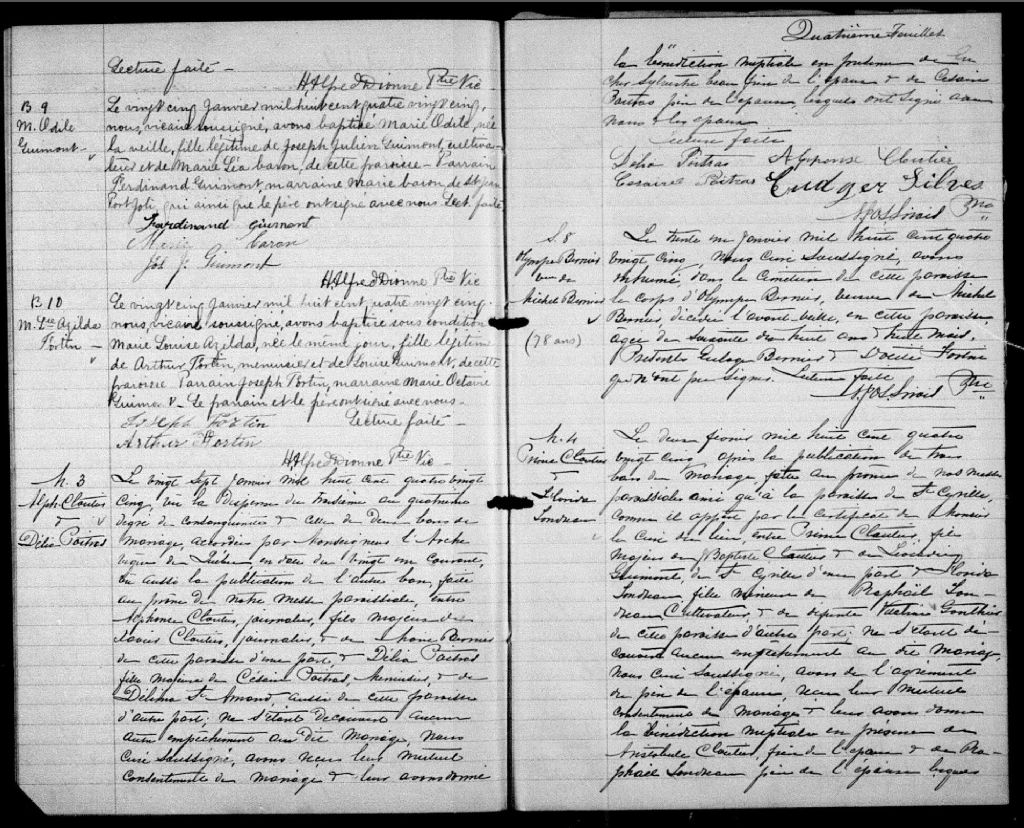 Lecture faite –
H Alfred Dionne Ptre Vic
B 9
M. Odile
Guimont –
Le vingt cinq Janvier mil huit cent quatre vingt cinq,
nous, vicaire soussigné, avons baptisé Marie Odile, née
la veille, fille légitime de Joseph Julien Guimont, cultiva-
teur et de Marie Léa Caron, de cette paroisse – Parrain
Ferdinand Guimont, marraine Marie Caron, de St Jean
Port Joli, qui ainsi que le père ont signé avec nous Lect. faite
Ferdinand Guimont
Marie Caron
Jos J. Guimont
H Alfred Dionne Ptre Vic
B 10
M. Lse Azilda
Fortin –
Le vingt cinq Janvier mil huit cent, quatre vingt cinq,
nous, vicaire soussigné, avons baptisé sous condition
Marie Louise Azilda, née le même jour, fille légitime
de Arthur Fortin, menuisier et de Louise Guimont, de cette
paroisse Parrain Joseph Fortin, marraine Marie Octavie
– Le parrain et le père ont signé avec nous –
Joseph Fortin Lecture faite –
Arthur Fortin
H Alfred Dionne Ptre Vic –
M. 3
Alph. Cloutier
&
Délia Poitras
Le vingt sept Janvier mil huit cent quatre vingt
cinq, vu la dispense du troisième au quatrième
degré de consanguinité & celle de deux bans de
mariage, accordées par Monseigneur l'Arche
vêque de Québec en date du vingt un courant,
vu aussi la publication de l'autre ban, faite
au prône de notre messe paroissiale, entre
Alphonse Cloutier, journalier, fils majeur de
Xavier Cloutier, journalier, & de Bernier
de cette paroisse d'une part, & Délia Poitras
fille majeure de Césaire Poitras, Menuisier, & de
Délima St Amand aussi de cette paroisse
d'autre part; ne s'étant découvert aucun
autre empêchement au dit mariage, Nous
Curé soussigné, avons reçu leur mutuel
consentement de mariage & leur avons donné
Quatrième Feuillet
la bénédiction nuptiale en présence de
Sylvestre beau frère de l'époux & de Césaire
Poitras père de l'épouse, lesquels ont signé avec
nous & les époux
Lecture faite
Délia Poitras Alphonse Cloutier
Cesaire Poitras Eudger Silves
Ptre
S. 8
Olympe Bernier
vve de
Michel Bernier
(78 ans)
Le trente un Janvier mil huit cent quatre
vingt cinq, Nous Curé Soussigné, avons
inhumé, dans le Cimetière de cette paroisse
le corps d'Olympe Bernier, veuve de Michel
Bernier, décédée l'avant-veille, en cette paroisse,
âgée de soixante dix huit ans & huit mois.
Présents Euloge Bernier & Fortin
qui n'ont pu signer. Lecture faite
Ptre
M. 4
Prime Cloutier
&
Florida
Londeau
Le deux février mil huit cent quatre
vingt cinq après la publication de trois
bans de mariage, faites au prône de nos messes
paroissiales ainsi qu'à la paroisse de St Cyrille,
comme il appert par le certificat de Monsieur
le Curé du lieu, entre Prime Cloutier, fils
majeur de J Baptiste Cloutier & de
Guimont, de St Cyrille d'une part & Florida
Londeau, fille mineure de Raphaël Lon-
deau Cultivateur, & de défunte Gonthier
de cette paroisse d'autre part; ne s'étant dé-
couvert aucun empêchement au dit mariage,
Nous Curé Soussigné, avons, de l'agrément
du père de l'épouse, reçu leur mutuel
consentement de mariage & leur avons donné
la bénédiction nuptiale en présence de
Cloutier, frère de l'époux & de Ra-
phaël Londeau père de l'épouse lesquels